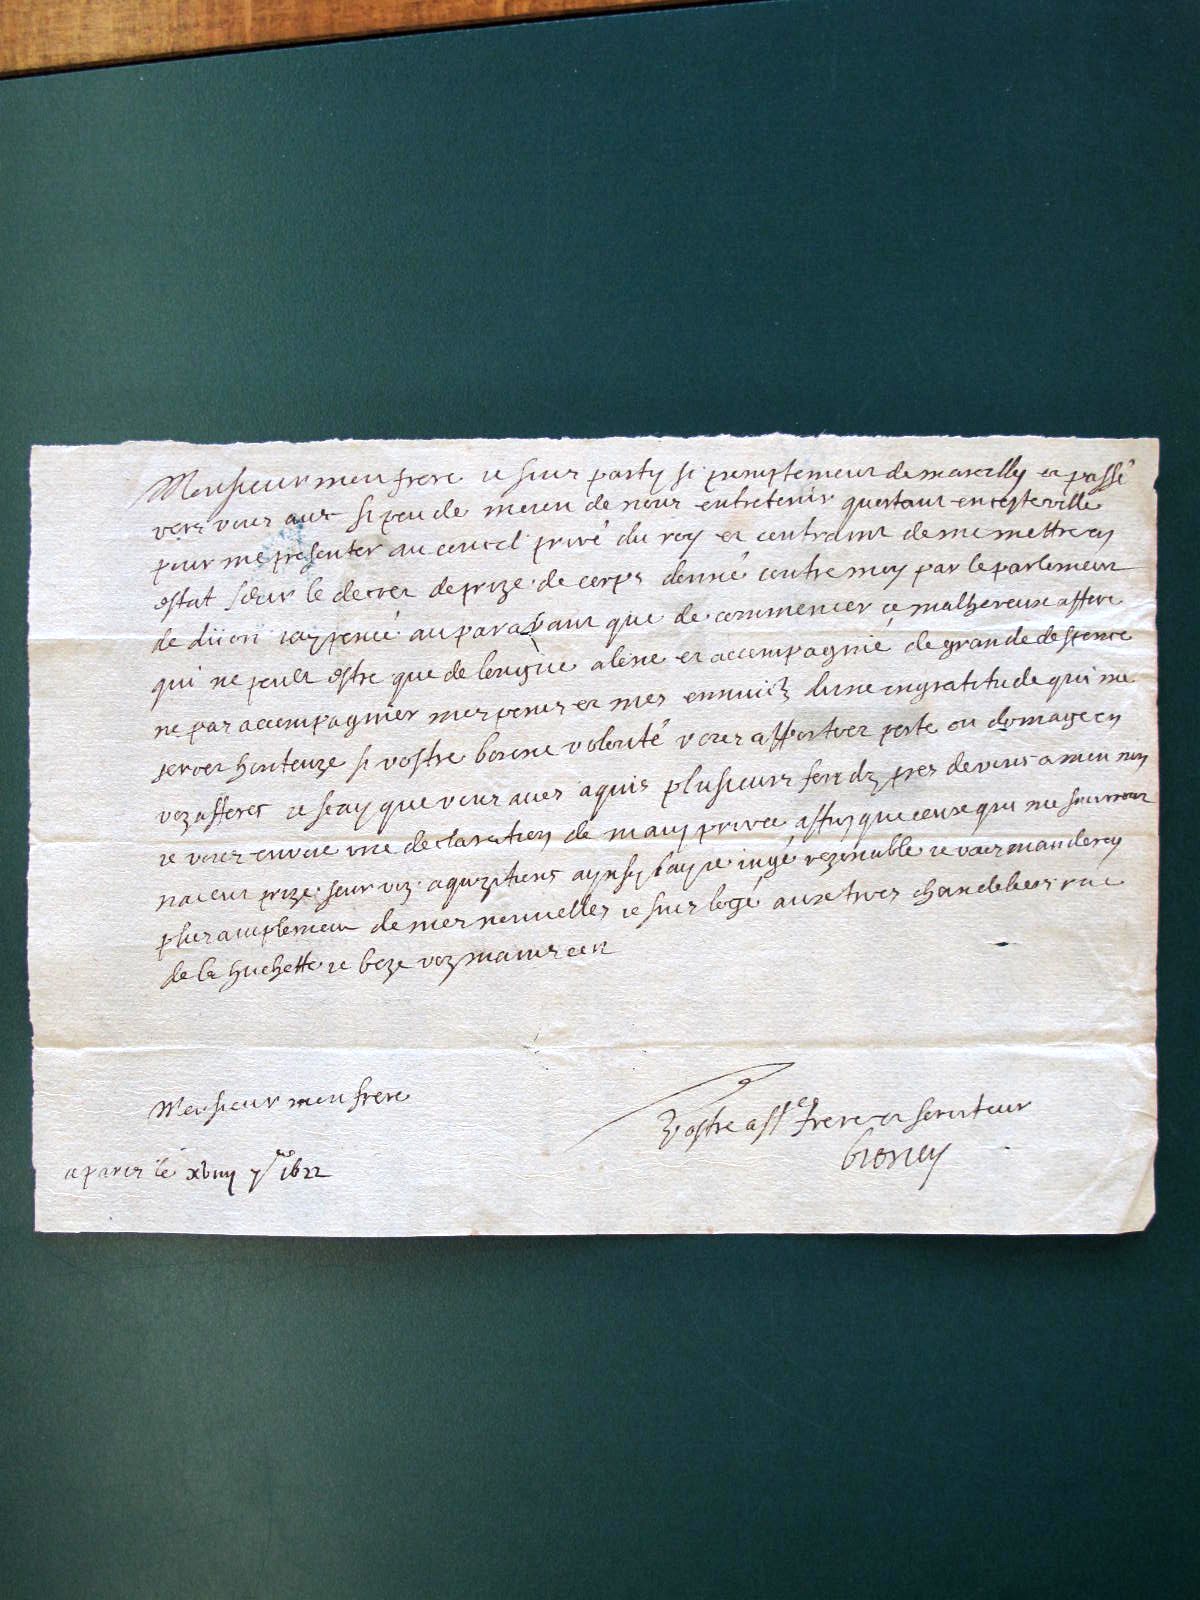 Monsieur mon frere ie suis party si promptement de marcilly et passé
vers vous aueс si peu de moien de nous entretenir questant en ceste ville
pour me presenter au conceil privé du roy et contraint de me mettre en
estat sur le decret de prize de corps donné contre moy par le parlement
de diion iay pencé auparavant que de commencer ce malhereuse affere
qui ne peult estre que de longue aleine et accompagnié de grande despence
ne pas accompagnier mes penes et mes ennuictz dune ingratitude qui me
seroit honteuze si vostre bonne volonté vous assortoer perte ou domage en
voz afferes ie scay que vous aues aquis plusieurs fondz pres de vous a mon nom
ie vous envoie une declaration de main privee affin que ceux qui me suivront
naient prize sour voz aquizitions aynsy lay ie iugé rezonable ie vous manderay
plus amplement de mes nouvelles ie suis logé aux trois chandeliers rue
de la huchette ie beze voz mains cett
Monsieur mon frere
Vostre affné frere et serviteur
a paris le xviiij 7bre 1622